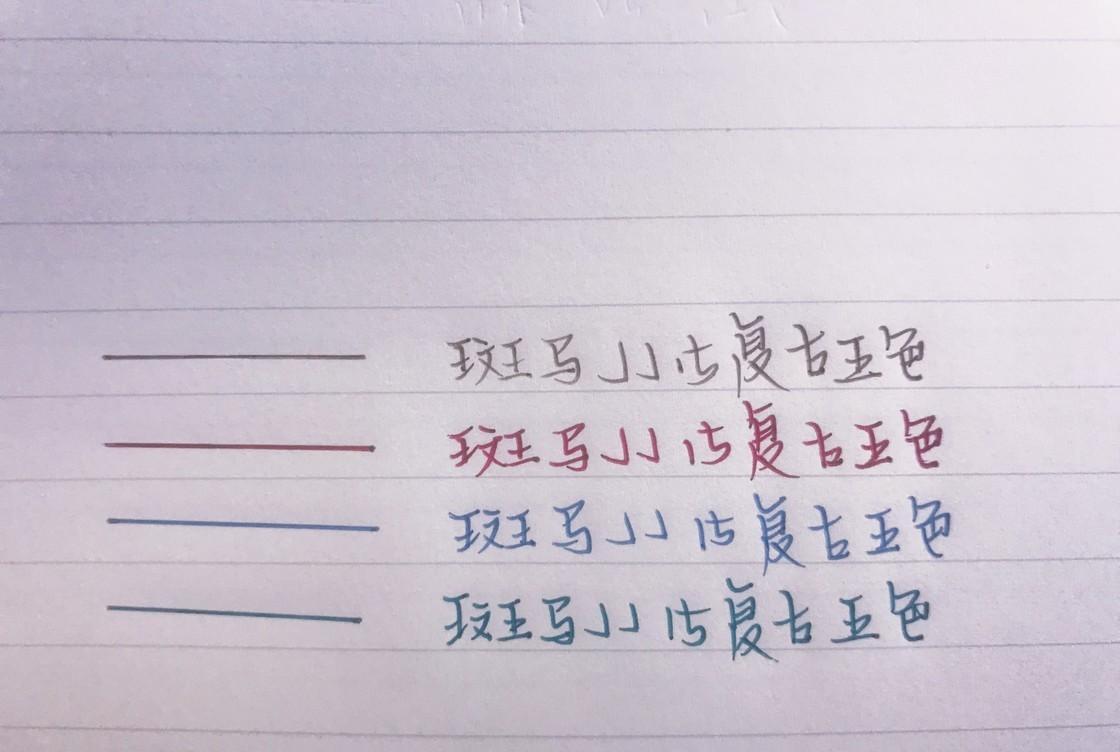 斑马JJ15复古五色
斑马JJ15复古五色
斑马JJ15复古五色
斑马JJ15复古五色